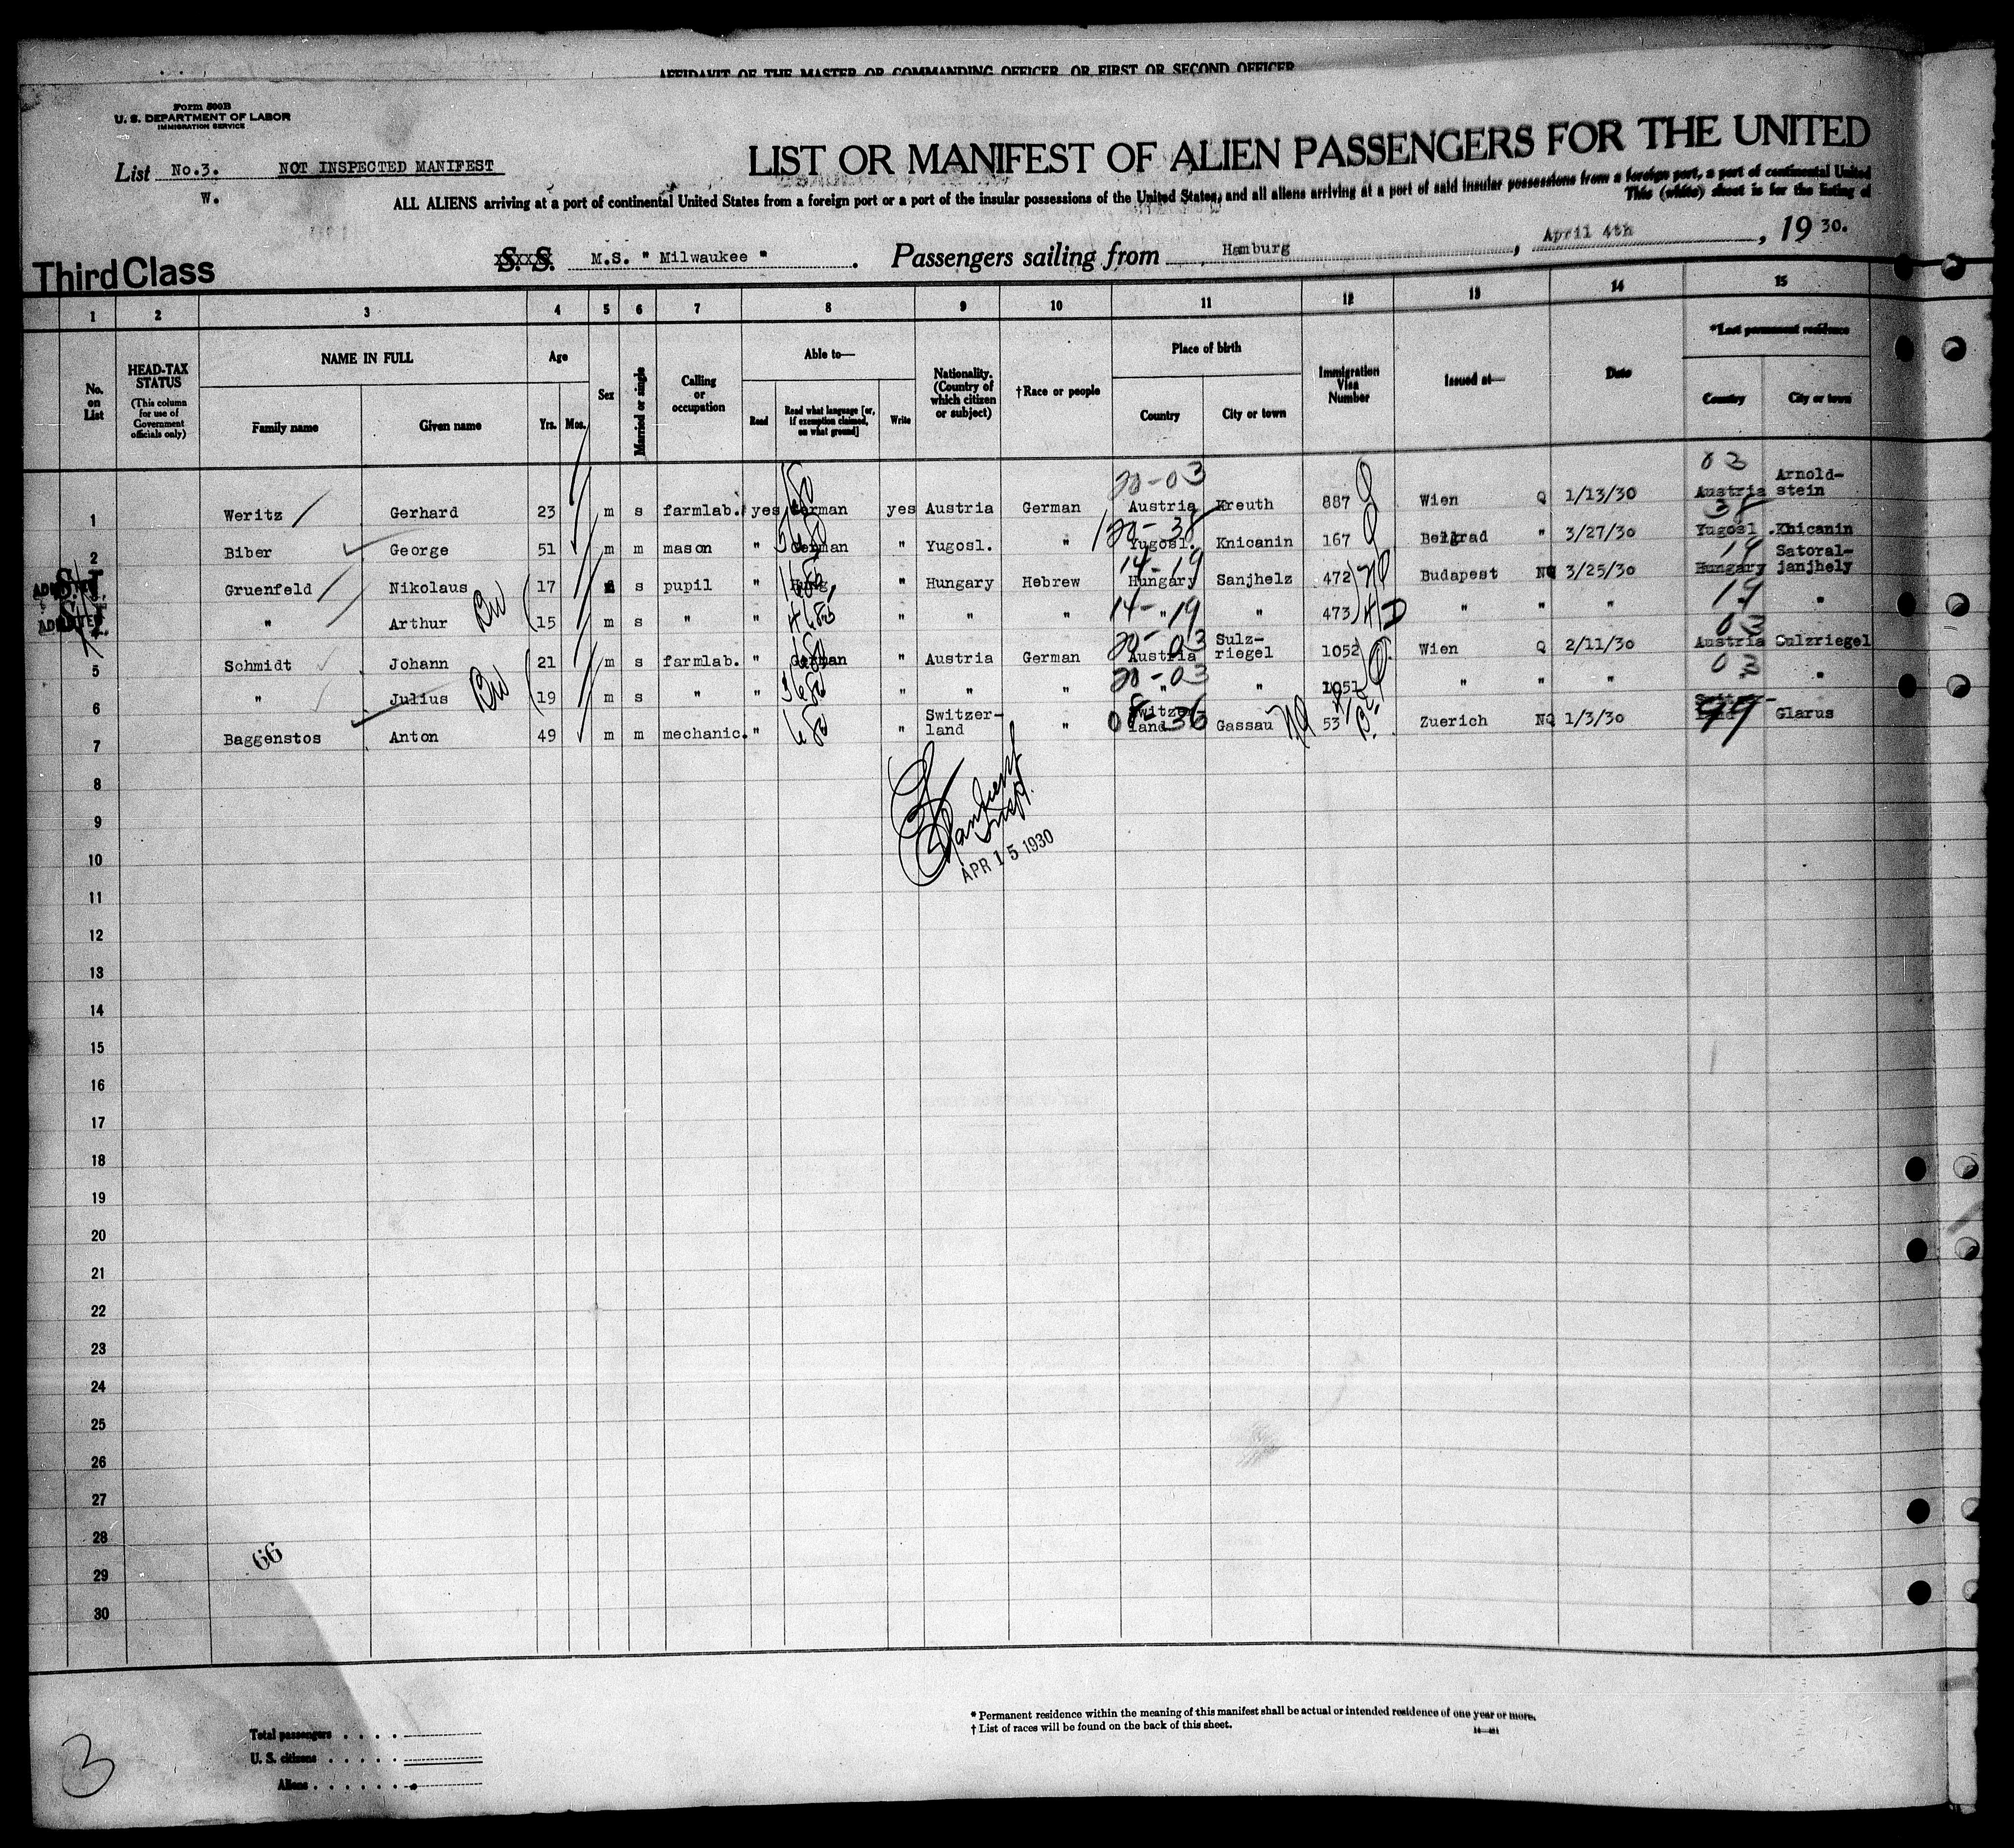 AFFIDAVIT OF THE MASTER OR COMMANDING OFFICER, OR FIRST OR SECOND OFFICER
Form 500B
U. S. DEPARTMENT OF LABOR
IMMIGRATION SERVICE
LIST OR MANIFEST OF ALIEN PASSENGERS FOR THE UNITED
List No.3. NOT INSPECTED MANIFEST
W.
ALL ALIENS arriving at a port of continental United States from a foreign port or a port of the insular possessions of the United States, and all aliens arriving at a port of said insular possessions from a foreign port, a port of continental United
This (white) sheet is for the listing of
Third Class S. S. M.S. " Milwaukee ". Passengers sailing from Hamburg, April 4th, 1930.
1 2 3 4 5 6 7 8 9 10 11 12 13 14 15
No. on List
HEAD-TAX STATUS (This column for use of Government officials only)
NAME IN FULL
Family name Given name
Age
Yrs. Mos.
Sex
Married or single
Calling or occupation
Able to—
Read Read what language [or, if exemption claimed, on what ground] Write
Nationality. (Country of which citizen or subject)
†Race or people
Place of birth
Country City or town
Immigration Visa Number
Issued at—
Date
*Last permanent residence
Country City or town
20-03 03
1 Weritz Gerhard 23 m s farmlab. yes German yes Austria German Austria Kreuth 887 Wien Q 1/13/30 Austria Arnold-stein
20-38 38
2 Biber George 51 m m mason " German " Yugosl. " Yugosl. Knicanin 167 Belgrad " 3/27/30 Yugosl. Knicanin
14-19 19
ADMITTED S.I. Gruenfeld Nikolaus 17 m s pupil " Hung. " Hungary Hebrew Hungary Sanjhelz 472 Budapest NQ 3/25/30 Hungary Satoral-janjhely
14-19 19
ADMITTED S.I. " Arthur 15 m s " " " " " " " 473 " " " "
20-03 03
5 Schmidt Johann 21 m s farmlab. " German " Austria German Austria Sulz-riegel 1052 Wien Q 2/11/30 Austria Sulzriegel
20-03 03
6 " Julius 19 m s " " " " " " " 1051 " " " " "
08-36 99
7 Baggenstos Anton 49 m m mechanic. " " Switzer-land " Switzer-land Gassau 53 Zuerich NQ 1/3/30 Switzer-land Glarus
APR 15 1930
8
9
10
11
12
13
14
15
16
17
18
19
20
21
22
23
24
25
26
27
28
29
30
66
* Permanent residence within the meaning of this manifest shall be actual or intended residence of one year or more.
† List of races will be found on the back of this sheet.
Total passengers
U. S. citizens
Aliens
3